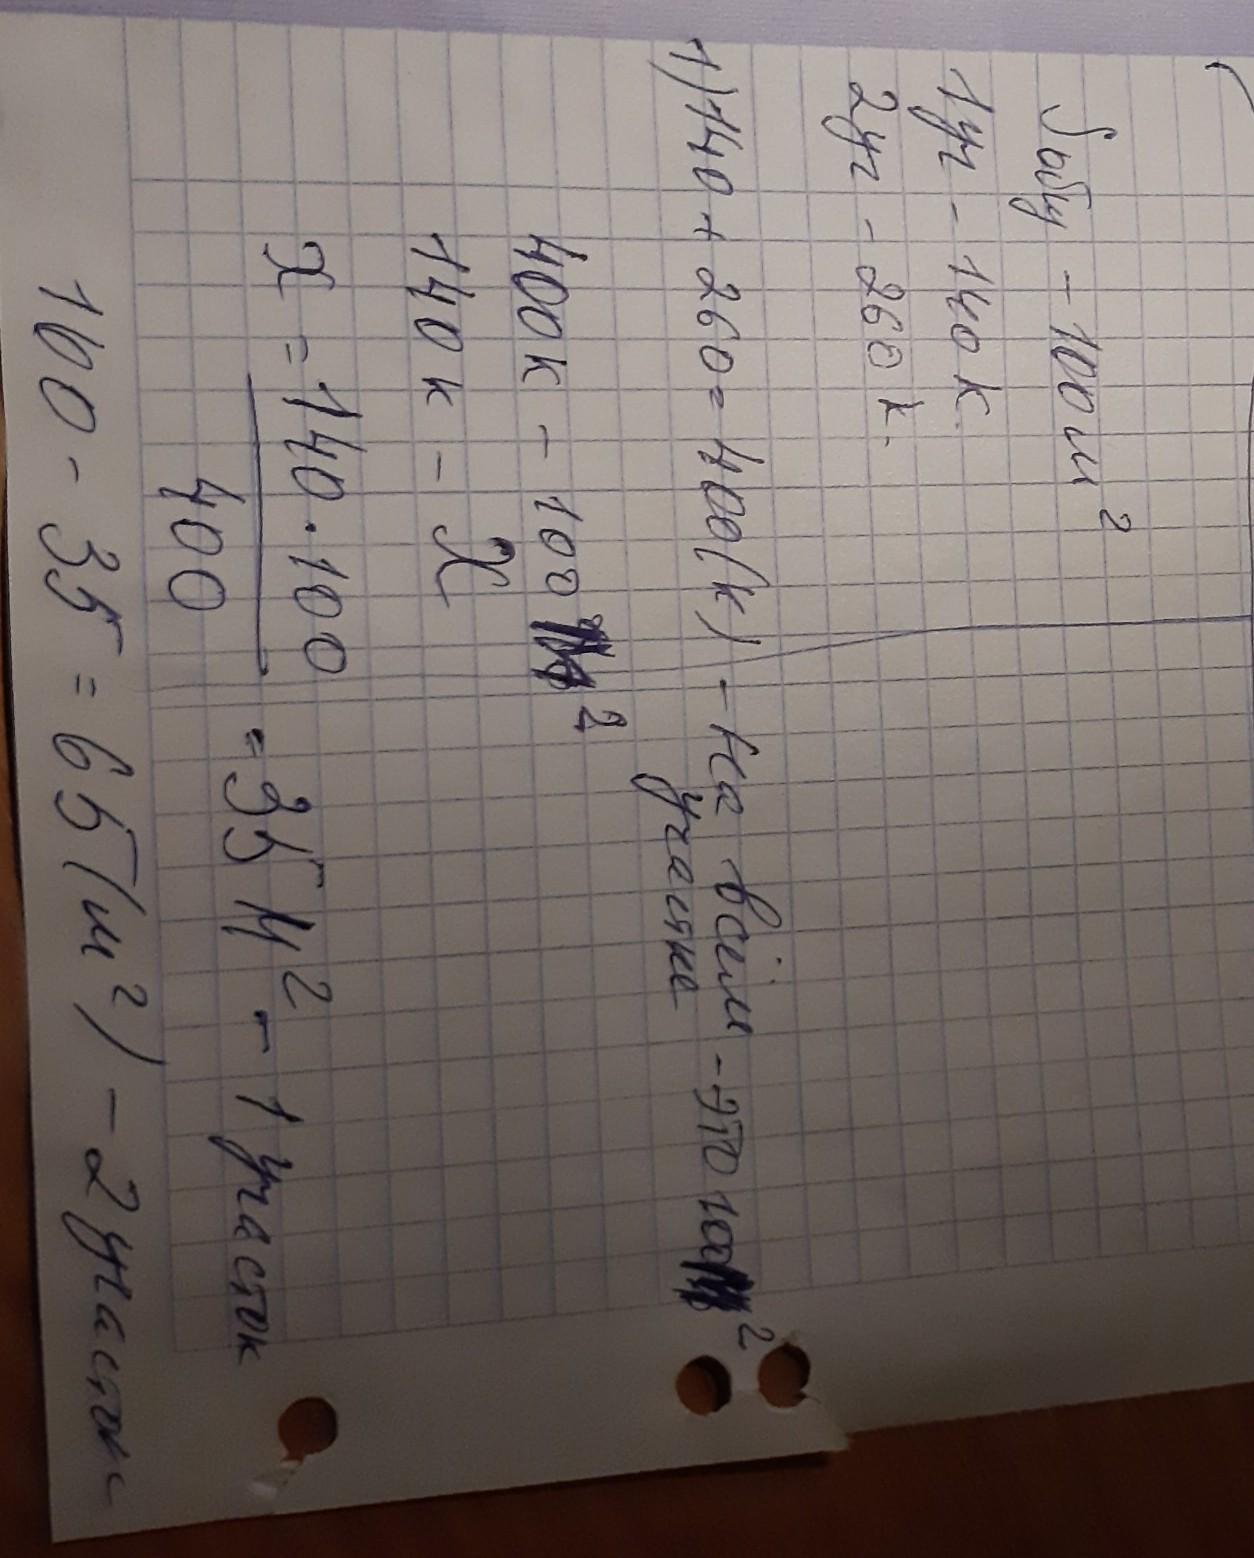 Sобщ - 100 м²
1уч - 140 к.
2уч - 260 к.
1) 140 + 260 = 400(к) - на всём - это 100м²
участке
400к - 100 м²
140 к - x
x = 140 · 100
400
= 35 м² - 1 участок
100 - 35 = 65 (м²) - 2 участок